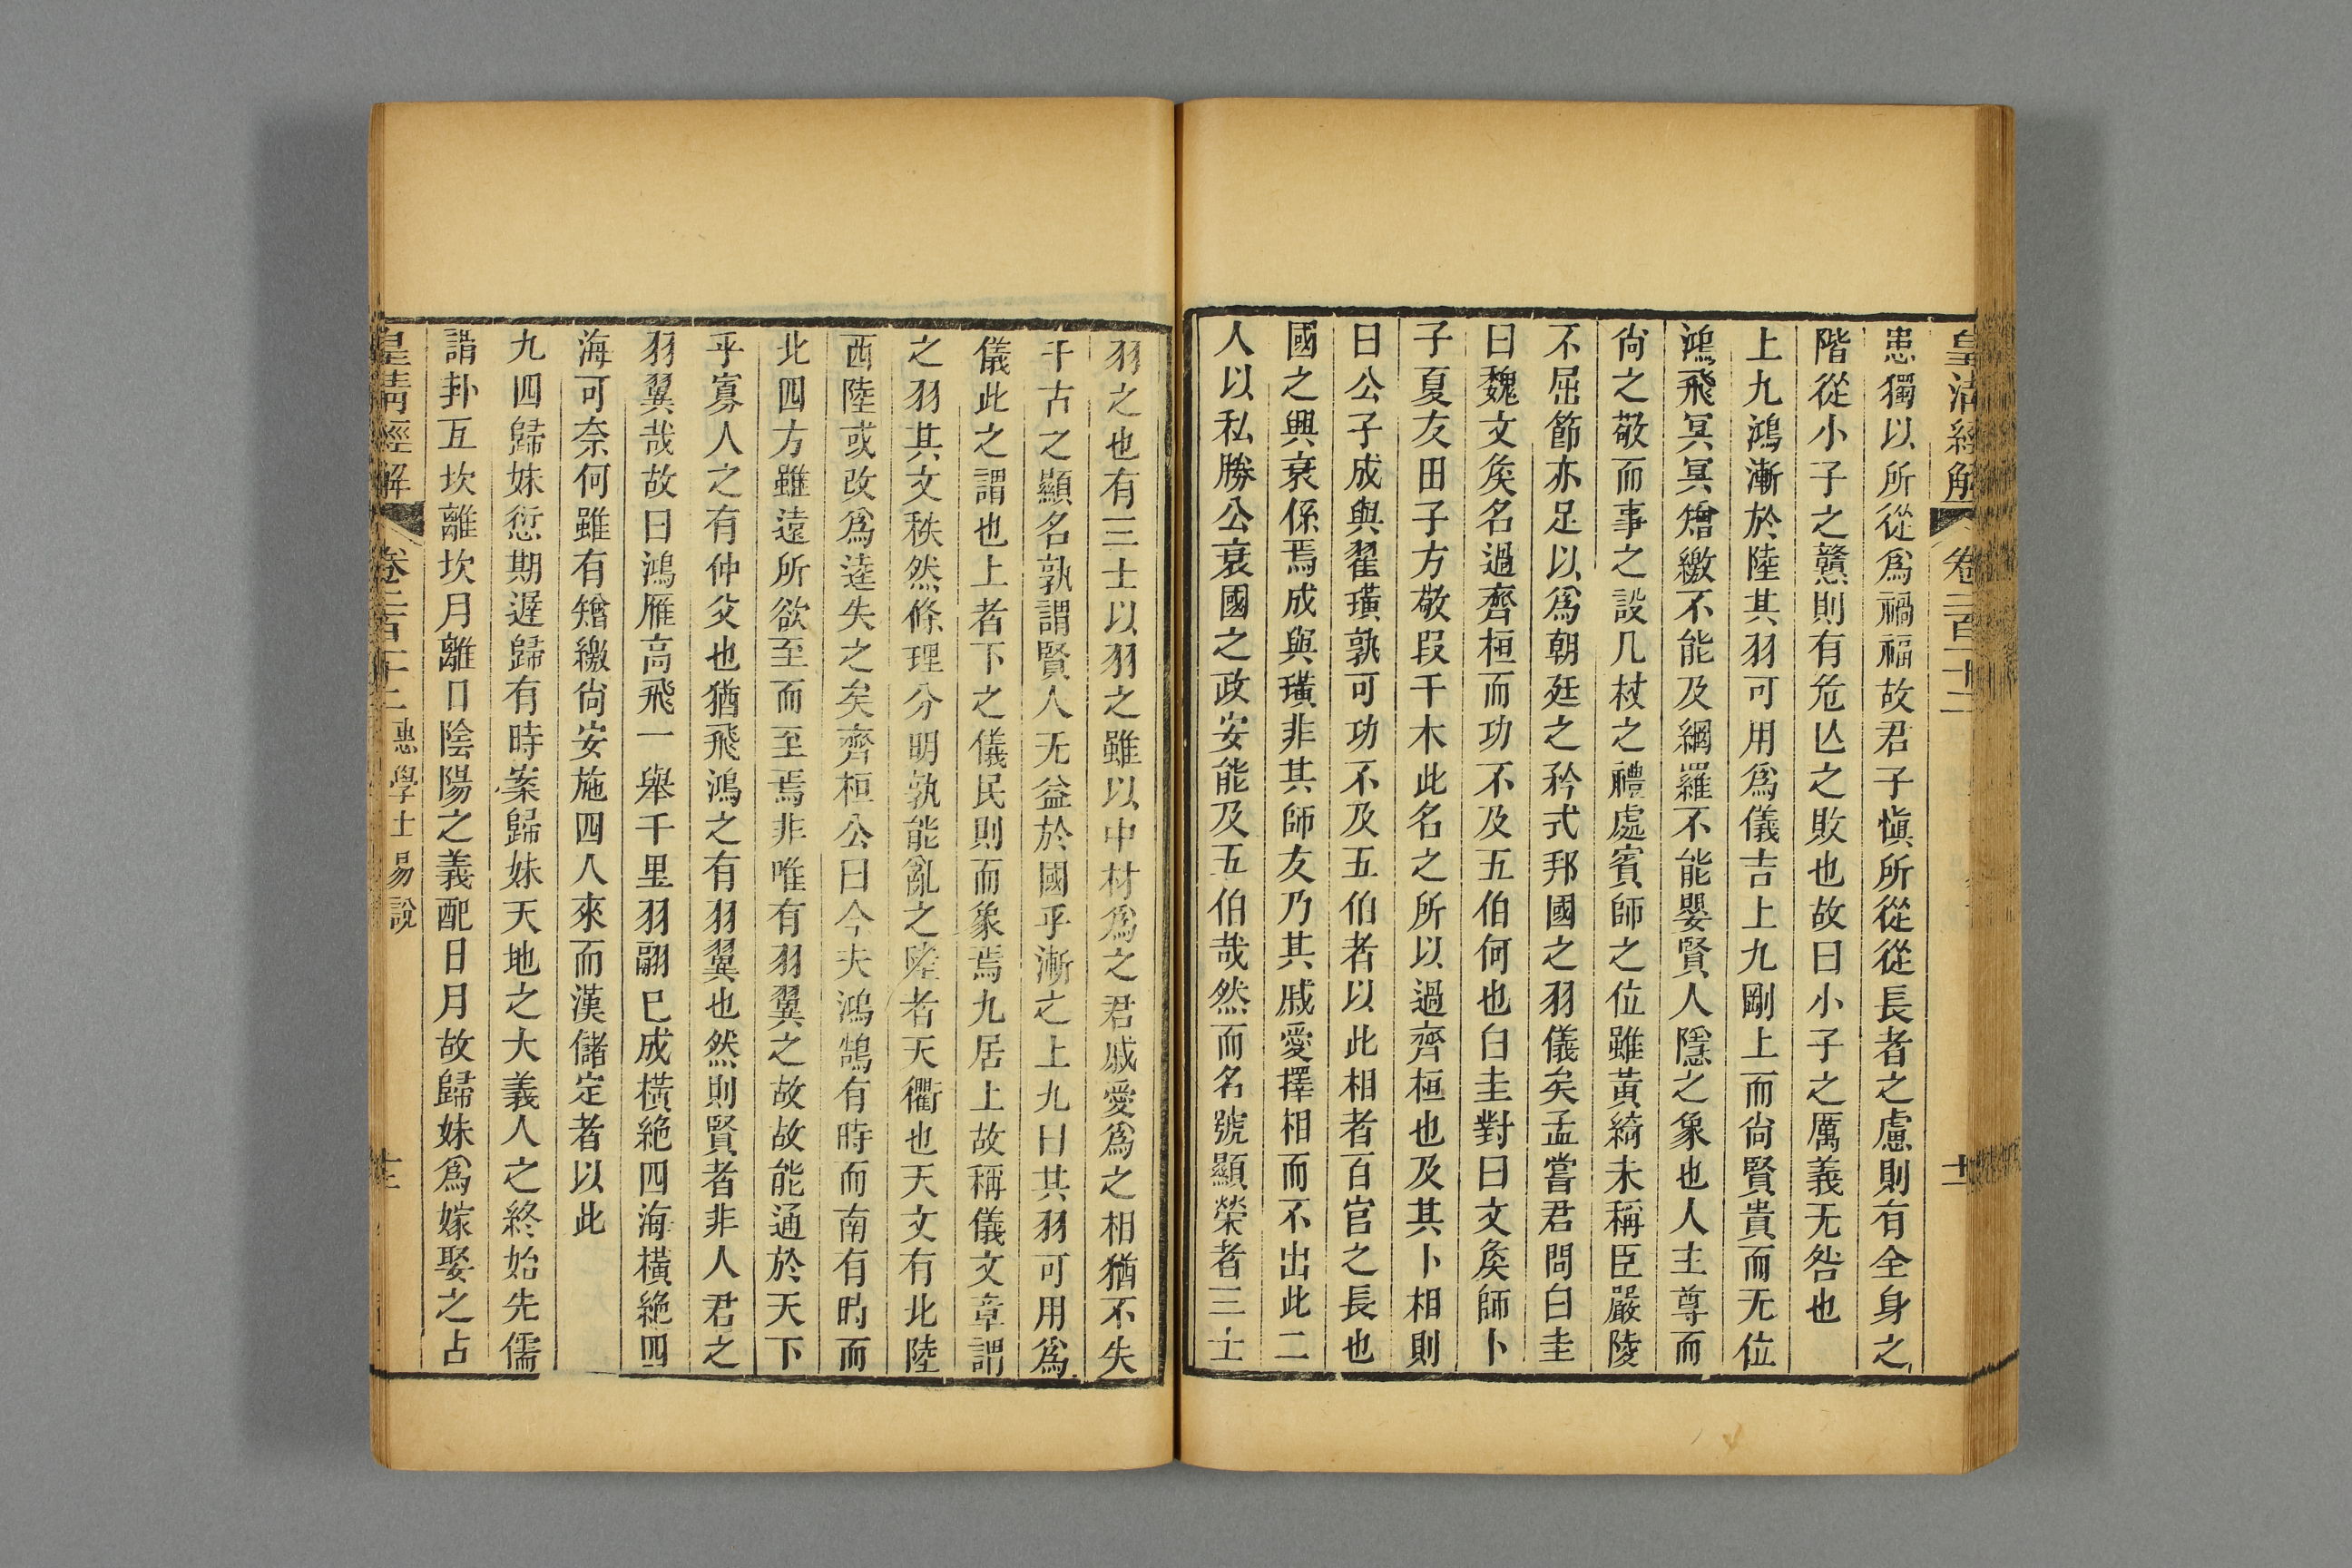 皇清經解
卷二百十二
士
患獨以所從爲禍福故君子愼所從從長者之慮則有全身之
階從小子之戇則有危亾之敗也故曰小子之厲義无咎也
上九鴻漸於陸其羽可用爲儀吉上九剛上而尙賢貴而无位
鴻飛冥冥矰繳不能及綱羅不能嬰賢人隱之象也人主尊而
尙之敬而事之設几杖之禮處賓師之位雖黃綺未稱臣嚴陵
不屈節亦足以爲朝廷之矜式邦國之羽儀矣孟嘗君問白圭
曰魏文矦名過齊桓而功不及五伯何也白圭對曰文矦師卜
子夏友田子方敬段干木此名之所以過齊桓也及其卜相則
曰公子成與翟璜孰可功不及五伯者以此相者百官之長也
國之興衰係焉成與璜非其師友乃其戚愛擇相而不出此二
人以私勝公衰國之政安能及五伯哉然而名號顯榮者三士
羽之也有三士以羽之雖以中材爲之君戚愛爲之相猶不失
千古之顯名孰謂賢人无益於國乎漸之上九曰其羽可用爲
儀此之謂也上者下之儀民則而象焉九居上故稱儀文章謂
之羽其文秩然條理分明孰能亂之陸者天衢也天文有北陸
西陸或改爲逵失之矣齊桓公曰今夫鴻鵠有時而南有時而
北四方雖遠所欲至而至焉非唯有羽翼之故故能通於天下
乎寡人之有仲父也猶飛鴻之有羽翼也然則賢者非人君之
羽翼哉故曰鴻雁高飛一舉千里羽翮已成橫絶四海橫絶四
海可奈何雖有矰繳尙安施四人來而漢儲定者以此
九四歸妹愆期遲歸有時案歸妹天地之大義人之終始先儒
謂卦互坎離坎月離日陰陽之義配日月故歸妹爲嫁娶之占
皇清經解
卷二百十二
惠學士易說